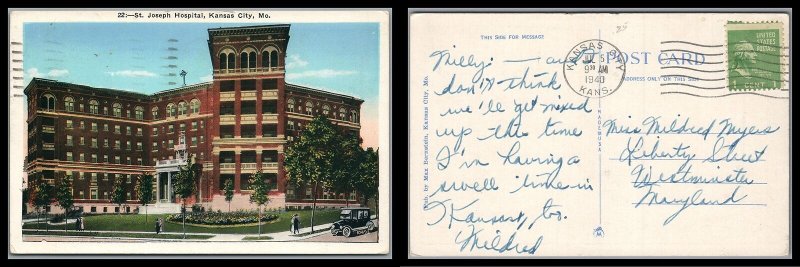 22:—St. Joseph Hospital, Kansas City, Mo.
THIS SIDE FOR MESSAGE
POST CARD
ADDRESS ONLY ON THIS SIDE
KANSAS CITY
9 30 AM
1940
KANS.
UNITED STATES POSTAGE
Pub. by Max Bernstein, Kansas City, Mo.
MADE USA
Milly: — and
don't think
we'll get mixed
up this time
I'm having a
swell time in
Kansas, too.
Mildred
Miss Mildred Myers
Liberty Street
Westminster
Maryland